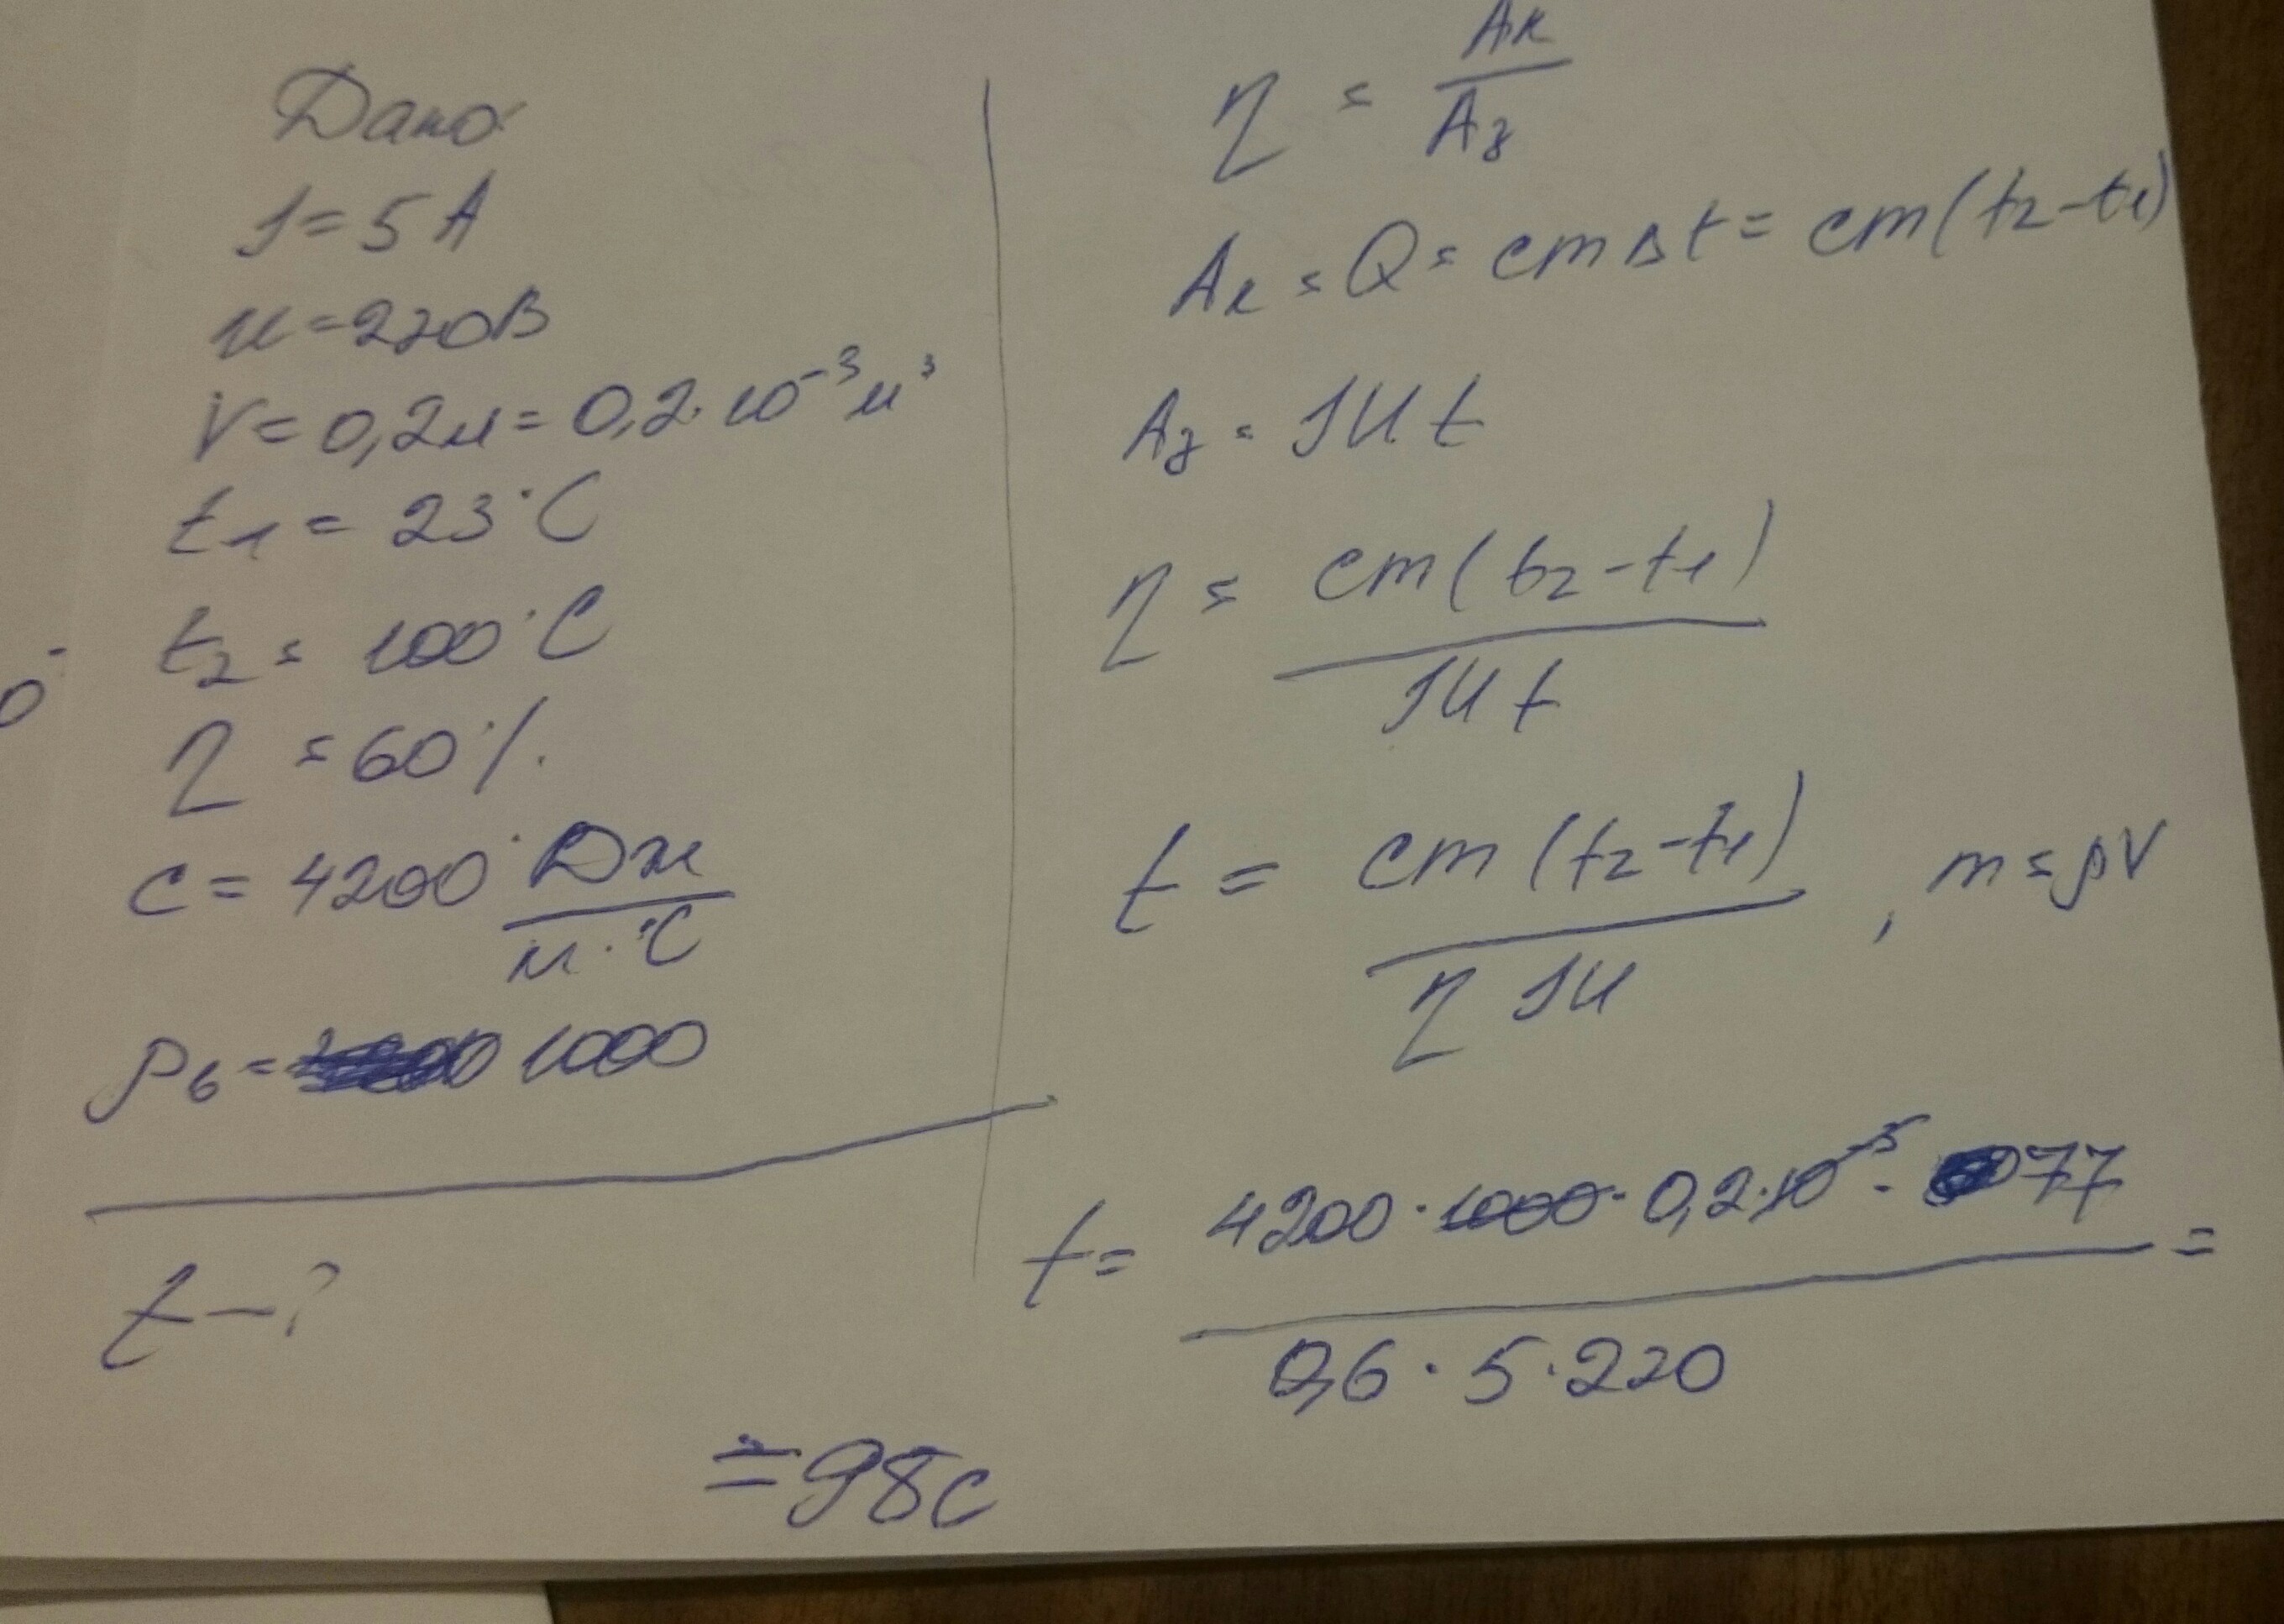 Дано
J = 5 A
U = 220В
V = 0,2л = 0,2·10⁻³м³
t₁ = 23°C
t₂ = 100°C
η = 60%
c = 4200 Дж / кг·°C
ρв = 1000
t – ?
η = Aк / Aз
Aк = Q = cmΔt = cm(t₂–t₁)
Aз = JUt
η = cm(t₂–t₁) / JUt
t = cm(t₂–t₁) / ηJU , m = ρV
t = 4200·1000·0,2·10⁻³·77 / 0,6·5·220 =
= 98c